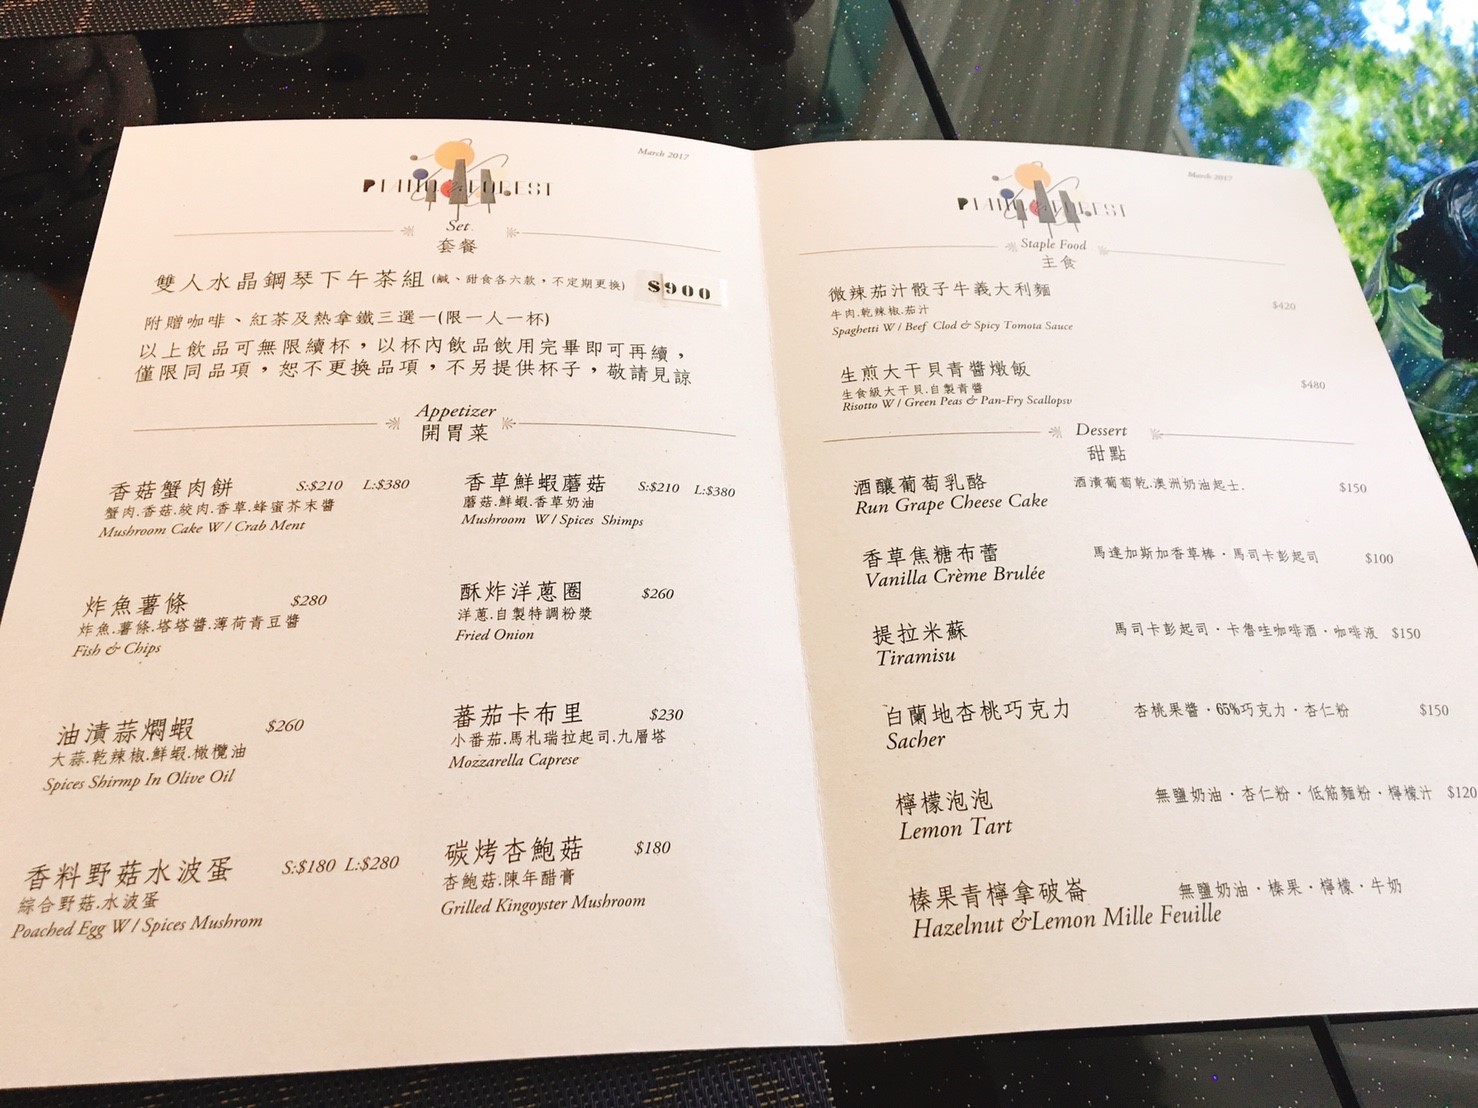 March 2017
PIANO & FOREST
Set
套餐
雙人水晶鋼琴下午茶組(鹹、甜食各六款,不定期更換) $900
附贈咖啡、紅茶及熱拿鐵三選一(限一人一杯)
以上飲品可無限續杯,以杯內飲品飲用完畢即可再續,
僅限同品項,恕不更換品項,不另提供杯子,敬請見諒
Appetizer
開胃菜
香菇蟹肉餅 S:$210 L:$380
蟹肉.香菇.絞肉.香草.蜂蜜芥末醬
Mushroom Cake W / Crab Ment
炸魚薯條 $280
炸魚.薯條.塔塔醬.薄荷青豆醬
Fish & Chips
油漬蒜燜蝦 $260
大蒜.乾辣椒.鮮蝦.橄欖油
Spices Shirmp In Olive Oil
香料野菇水波蛋 S:$180 L:$280
綜合野菇.水波蛋
Poached Egg W / Spices Mushrom
香草鮮蝦蘑菇 S:$210 L:$380
蘑菇.鮮蝦.香草奶油
Mushroom W / Spices Shimps
酥炸洋蔥圈 $260
洋蔥.自製特調粉漿
Fried Onion
蕃茄卡布里 $230
小番茄.馬札瑞拉起司.九層塔
Mozzarella Caprese
碳烤杏鮑菇 $180
杏鮑菇.陳年醋膏
Grilled Kingoyster Mushroom
March 2017
PIANO & FOREST
Staple Food
主食
微辣茄汁骰子牛義大利麵 $420
牛肉.乾辣椒.茄汁
Spaghetti W / Beef Clod & Spicy Tomota Sauce
生煎大干貝青醬燉飯 $480
生食級大干貝.自製青醬
Risotto W / Green Peas & Pan-Fry Scallopsv
Dessert
甜點
酒釀葡萄乳酪 酒漬葡萄乾.澳洲奶油起士. $150
Run Grape Cheese Cake
香草焦糖布蕾 馬達加斯加香草棒・馬司卡彭起司 $100
Vanilla Crème Brulée
提拉米蘇 馬司卡彭起司・卡魯哇咖啡酒・咖啡液 $150
Tiramisu
白蘭地杏桃巧克力 杏桃果醬・65%巧克力・杏仁粉 $150
Sacher
檸檬泡泡 無鹽奶油・杏仁粉・低筋麵粉・檸檬汁 $120
Lemon Tart
榛果青檸拿破崙 無鹽奶油・榛果・檸檬・牛奶
Hazelnut & Lemon Mille Feuille